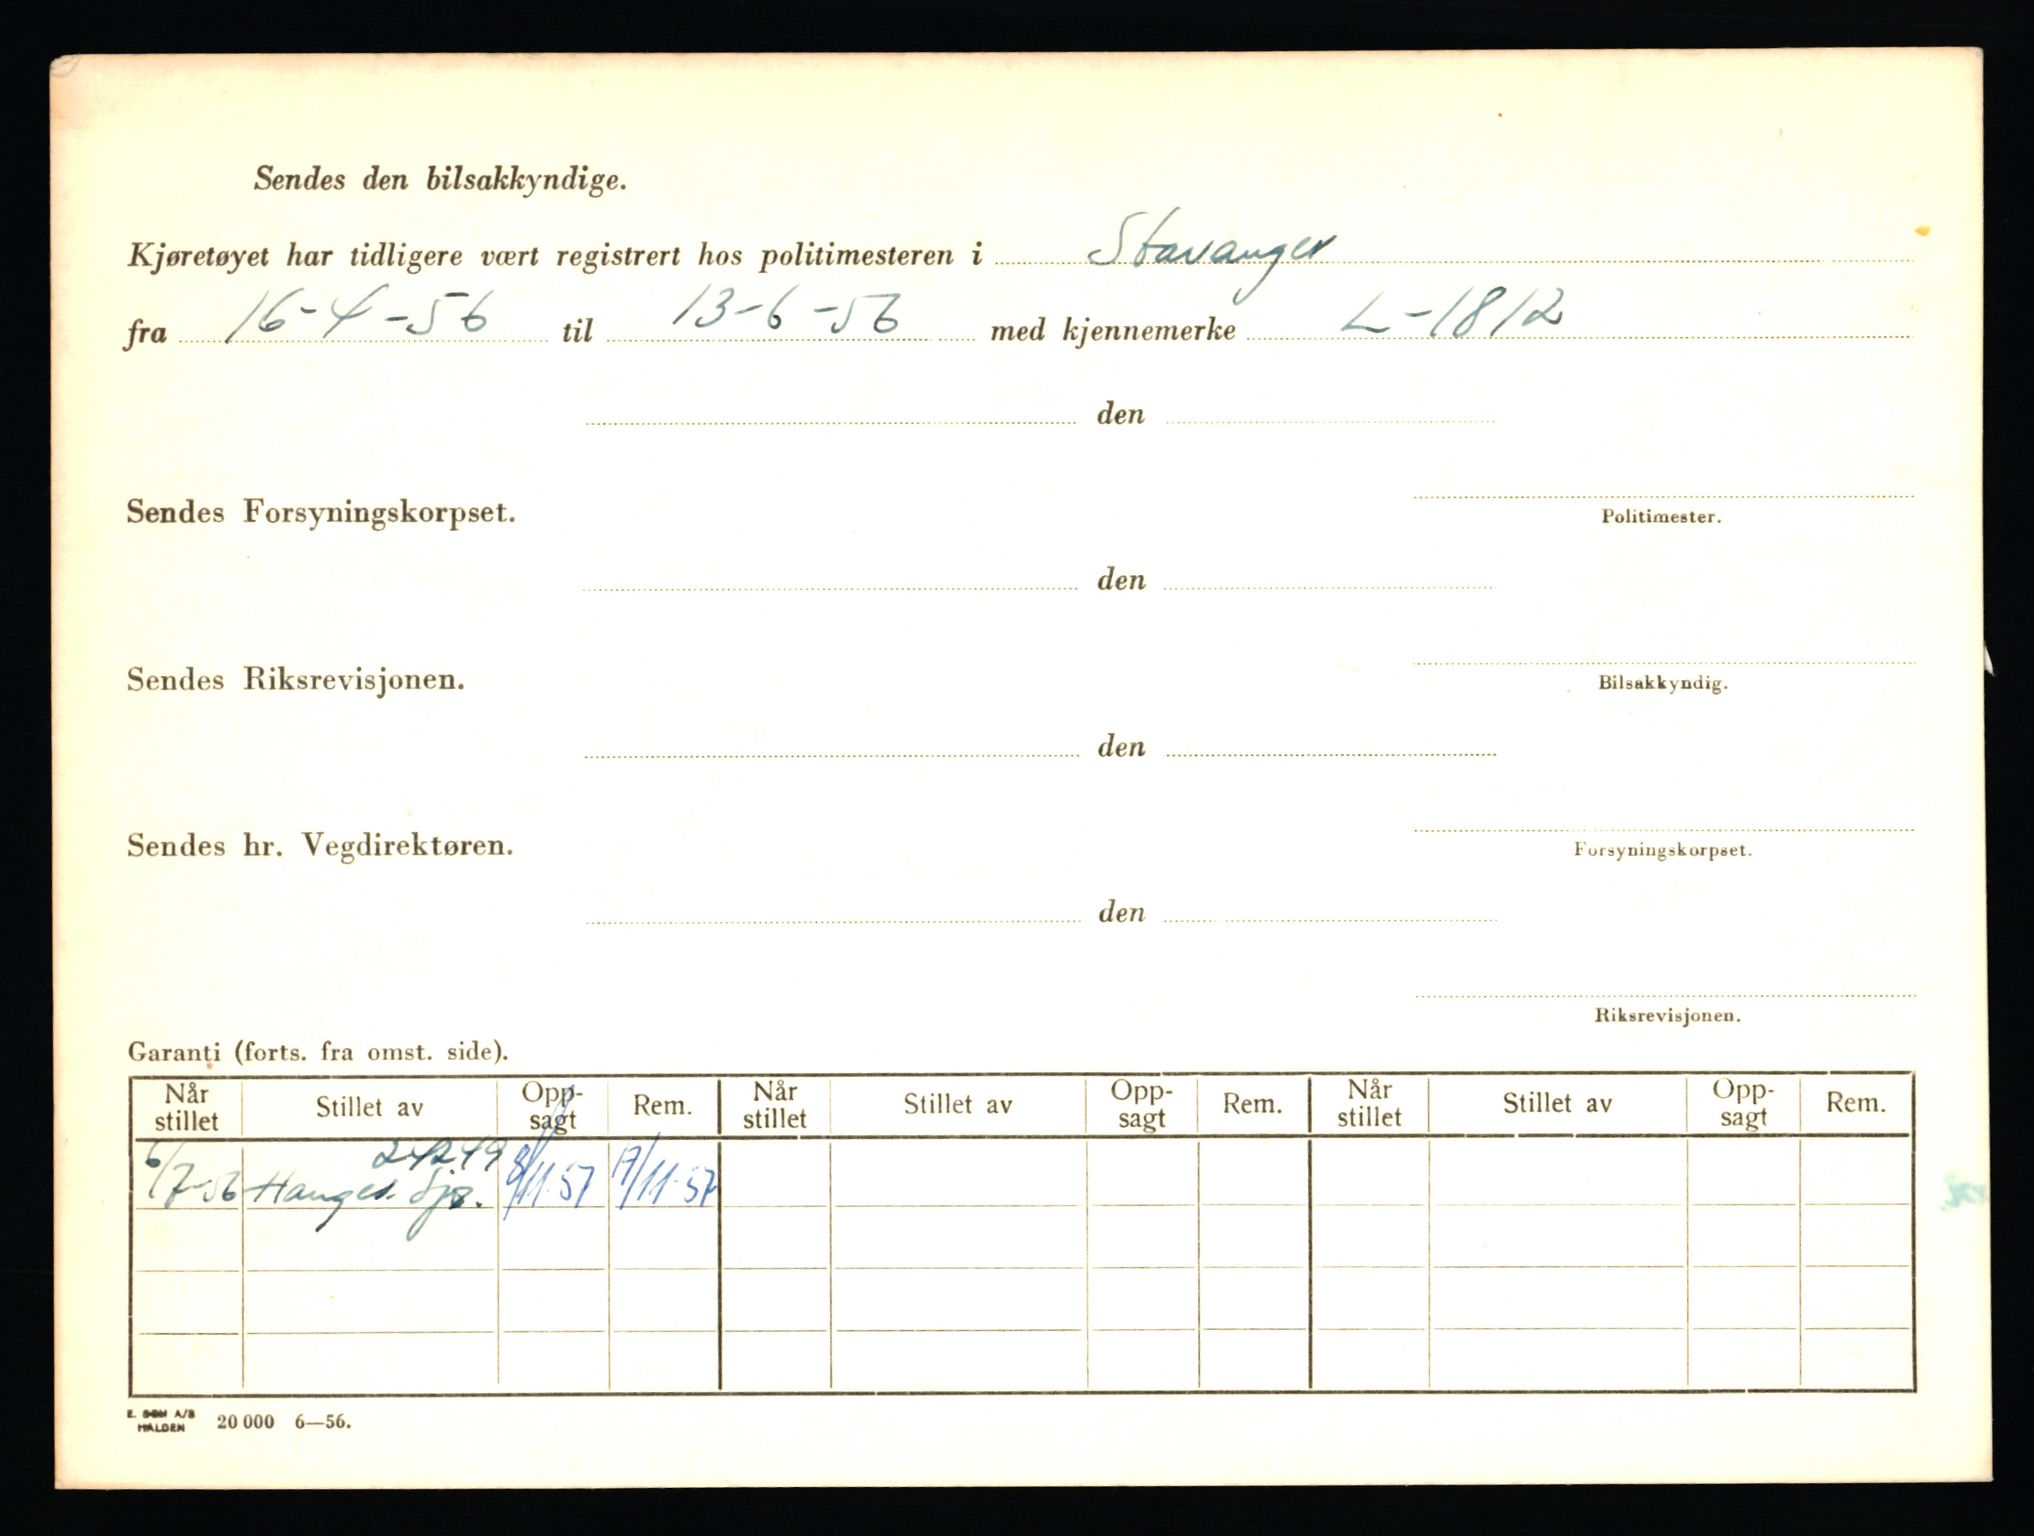 Sendes den bilsakkyndige.
Kjøretøyet har tidligere vært registrert hos politimesteren i Stavanger
fra 16-4-56 til 13-6-56 med kjennemerke L-1812
den
Sendes Forsyningskorpset.
Politimester.
den
Sendes Riksrevisjonen.
Bilsakkyndig.
den
Sendes hr. Vegdirektøren.
Forsyningskorpset.
den
Riksrevisjonen.
Garanti (forts. fra omst. side).
Når stillet Stillet av Opp-sagt Rem. Når stillet Stillet av Opp-sagt Rem. Når stillet Stillet av Opp-sagt Rem.
24249
6/7-56 Hauges. Sjø. 8/11-57 17/11-57
E. SEM A/S
HALDEN 20 000 6—56.